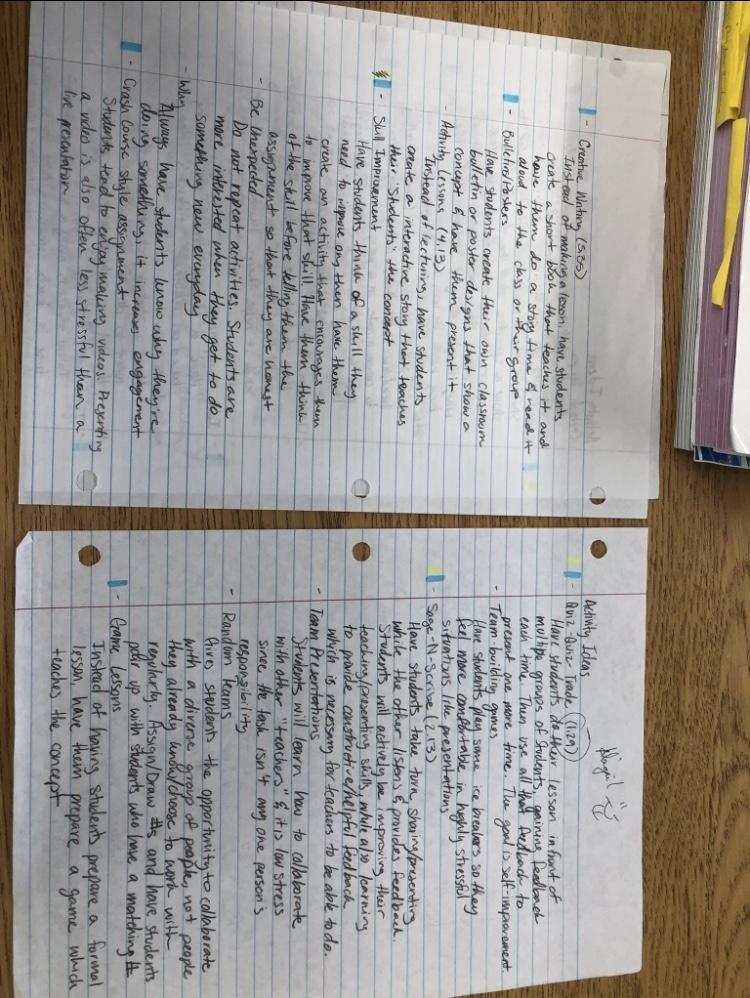 Activity Ideas
- Quiz-Quiz-Trade (1.29)
Have students do their lesson in front of
multiple groups of students, gaining feedback
each time. Then use all that feedback to
present one more time. The goal is self-improvement.
- Team-building games
Have students play some ice breakers so they
feel more comfortable in highly stressful
situations like presentations
- Sage-N-Scribe (2.13)
Have students take turn, sharing/presenting
while the other listens & provides feedback.
Students will actively be improving their
teaching/presenting skills, while also learning
to provide constructive/helpful feedback
which is necessary for teachers to be able to do.
- Team Presentations
Students will learn how to collaborate
with other "teachers" & it is low stress
since the task isn't any one person's
responsibility
- Random teams
Gives students the opportunity to collaborate
with a diverse group of people, not people
they already know/choose to work with
regularly. Assign/Draw #s and have students
pair up with students who have a matching #
- Game Lessons
Instead of having students prepare a formal
lesson, have them prepare a game which
teaches the concept
- Creative Writing (5.35)
Instead of making a lesson, have students
create a short book that teaches it and
have them do a story time & read it
aloud to the class or their group
- Bulletin/Posters
Have students create their own classroom
bulletin or poster designs that show a
concept & have them present it
- Activity Lessons (4.13)
Instead of lecturing, have students
create a interactive story that teaches
their "students" the concept
- Skill Improvement
Have students think of a skill they
need to improve on, then have them
create an activity that encourages them
to improve that skill. Have them think
of the skill before telling them the
assignment so that they are honest
- Be Unexpected
Do not repeat activities. Students are
more interested when they get to do
something new everyday
- Why
Always have students know why they're
doing something, it increases engagement
- Crash Course style assignment
Students tend to enjoy making videos. Presenting
a video is also often less stressful then a
live presentation